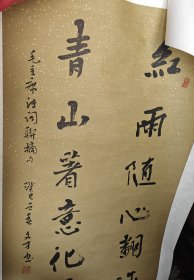 紅雨随心翻
青山著意化
毛主席诗词联摘句
癸巳